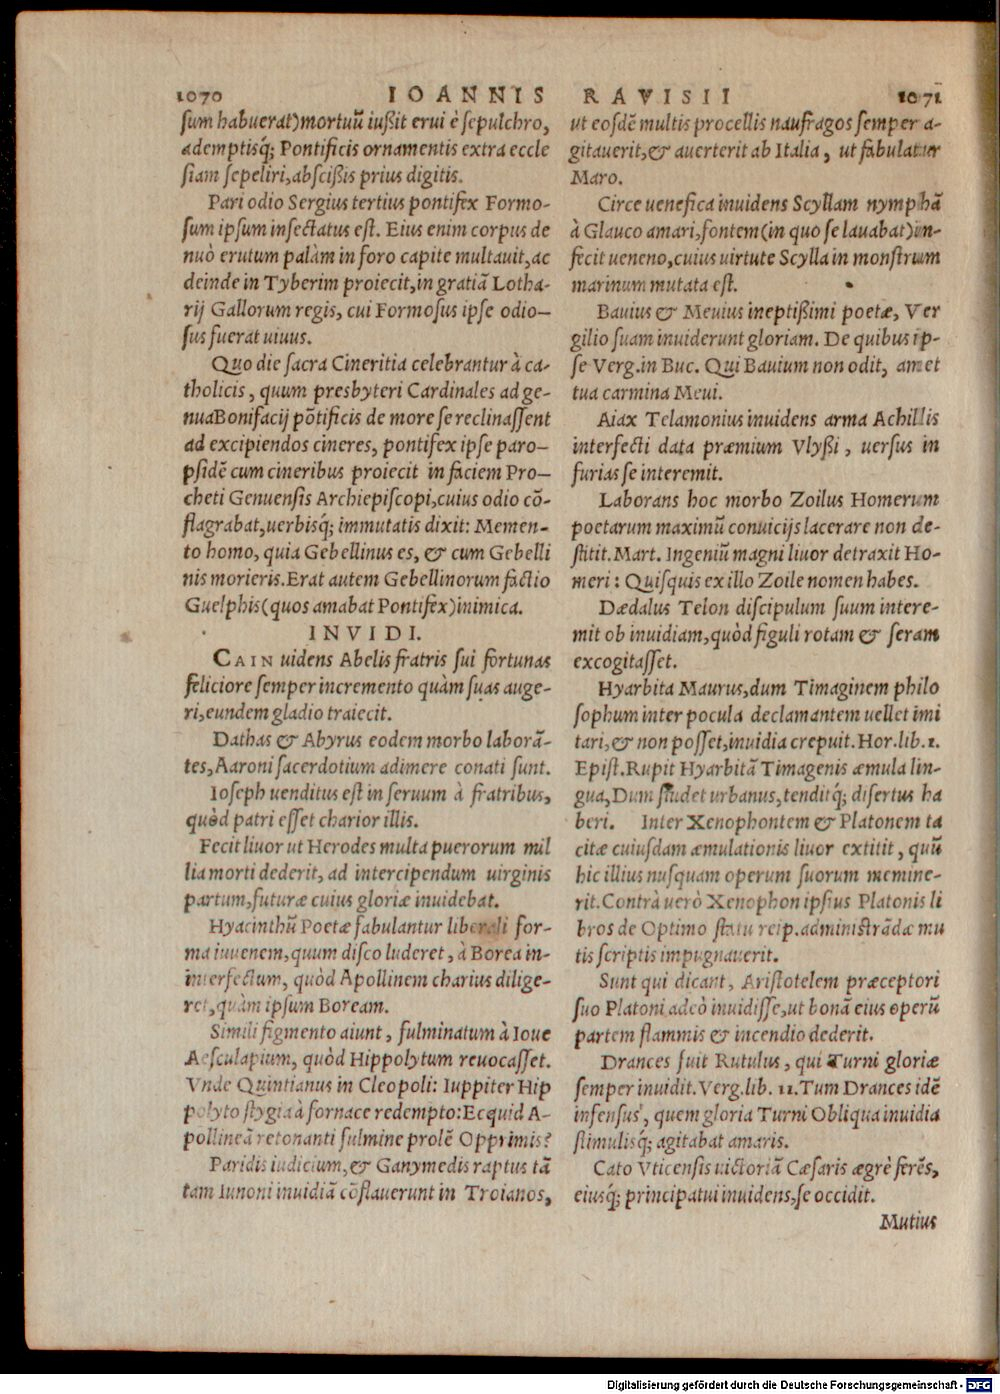 1070 IOANNIS RAVISII 1071
sum habuerat) mortuũ iußit erui è sepulchro,
ademptisq́; Pontificis ornamentis extra eccle
siam sepeliri, abscißis prius digitis.
Pari odio Sergius tertius pontifex Formo-
sum ipsum insectatus est. Eius enim corpus de
nuò erutum palàm in foro capite multauit, ac
deinde in Tyberim proiecit, in gratiã Lotha-
rij Gallorum regis, cui Formosus ipse odio-
sus fuerat uiuus.
Quo die sacra Cineritia celebrantur à ca-
tholicis, quum presbyteri Cardinales ad ge-
nua Bonifacij põtificis de more se reclinassent
ad excipiendos cineres, pontifex ipse paro-
psidẽ cum cineribus proiecit in faciem Pro-
cheti Genuensis Archiepiscopi, cuius odio cõ-
flagrabat, uerbisq́; immutatis dixit: Memen-
to homo, quia Gebellinus es, & cum Gebelli
nis morieris. Erat autem Gebellinorum factio
Guelphis (quos amabat Pontifex) inimica.
INVIDI.
CAIN uidens Abelis fratris sui fortunas
feliciore semper incremento quàm suas auge-
ri, eundem gladio traiecit.
Dathas & Abyrus eodem morbo laborã-
tes, Aaroni sacerdotium adimere conati sunt.
Ioseph uenditus est in seruum à fratribus,
quòd patri esset charior illis.
Fecit liuor ut Herodes multa puerorum mil
lia morti dederit, ad intercipendum uirginis
partum, futuræ cuius gloriæ inuidebat.
Hyacinthũ Poetæ fabulantur liberali for-
ma iuuenem, quum disco luderet, à Borea in-
interfectum, quòd Apollinem charius dilige-
ret, quàm ipsum Boream.
Simili figmento aiunt, fulminatum à Ioue
Aesculapium, quòd Hippolytum reuocasset.
Vnde Quintianus in Cleopoli: Iuppiter Hip
polyto stygia à fornace redempto: Ecquid A-
pollineã retonanti fulmine prolẽ Opprimis?
Paridis iudicium, & Ganymedis raptus tã
tam Iunoni inuidiã cõflauerunt in Troianos,
ut eosdẽ multis procellis naufragos semper a-
gitauerit, & auerterit ab Italia, ut fabulatur
Maro.
Circe uenefica inuidens Scyllam nymphã
à Glauco amari, fontem (in quo se lauabat) in-
fecit ueneno, cuius uirtute Scylla in monstrum
marinum mutata est.
Bauius & Meuius ineptißimi poetæ, Ver
gilio suam inuiderunt gloriam. De quibus ip-
se Verg. in Buc. Qui Bauium non odit, amet
tua carmina Meui.
Aiax Telamonius inuidens arma Achillis
interfecti data præmium Vlyßi, uersus in
furias se interemit.
Laborans hoc morbo Zoilus Homerum
poetarum maximũ conuicijs lacerare non de-
stitit. Mart. Ingeniũ magni liuor detraxit Ho-
meri: Quisquis ex illo Zoile nomen habes.
Dædalus Telon discipulum suum intere-
mit ob inuidiam, quòd figuli rotam & seram
excogitasset.
Hyarbita Maurus, dum Timaginem philo
sophum inter pocula declamantem uellet imi
tari, & non posset, inuidia crepuit. Hor. lib. 1.
Epist. Rupit Hyarbitã Timagenis æmula lin-
gua, Dum studet urbanus, tenditq́; disertus ha
beri. Inter Xenophontem & Platonem ta
citæ cuiusdam æmulationis liuor extitit, quũ
hic illius nusquam operum suorum memine-
rit. Contrà uerò Xenophon ipsius Platonis li
bros de Optimo statu reip. administrãdæ mu
tis scriptis impugnauerit.
Sunt qui dicant, Aristotelem præceptori
suo Platoni adeò inuidisse, ut bonã eius operũ
partem flammis & incendio dederit.
Drances fuit Rutulus, qui Turni gloriæ
semper inuidit. Verg. lib. 11. Tum Drances idẽ
infensus, quem gloria Turni Obliqua inuidia
stimulisq́; agitabat amaris.
Cato Vticensis uictoriã Cæsaris ægrè ferẽs,
eiusq́; principatui inuidens, se occidit.
Mutius
Digitalisierung gefördert durch die Deutsche Forschungsgemeinschaft - DFG